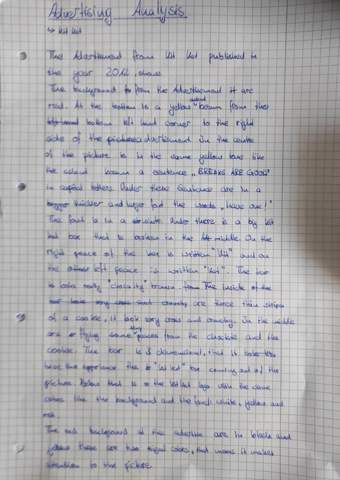 Advertising Analysis
↳ Kit Kat
The Advertisement from Kit Kat published in
the year 2012, shows
The background from the Advertisement it are
red. At the bottom is a yellow beam from the
bottom left hand corner to the right
side of the advertisement. In the centre
of the picture is in the same yellow tone like
the beam a sentence „BREAKS ARE GOOD"
in capital letters. Under these Sentence are in a
thicker and bigger font the words „have one!"
The font is in a white. Under there is a big kit
kat bar that is broken in the middle. On the
right peace of the bar is written "Kit" and on
the left peace is written "Kat". The bar
is a really "chocolatly" brown. From the inside of the
bar are three thin strips
of a cookie, it look very cross and crunchy. In the middle
are flying some peaces from the chocolate and the
cookie. The bar is 3 dimensional, that it
the "kit kat" bar coming out of the
picture. Below that is the kitkat logo with the same
colors like the background and the font: white, yellow and
red.
The red background of the advertise are in
yellow these are two signal colors, that means it makes
attention to the picture.